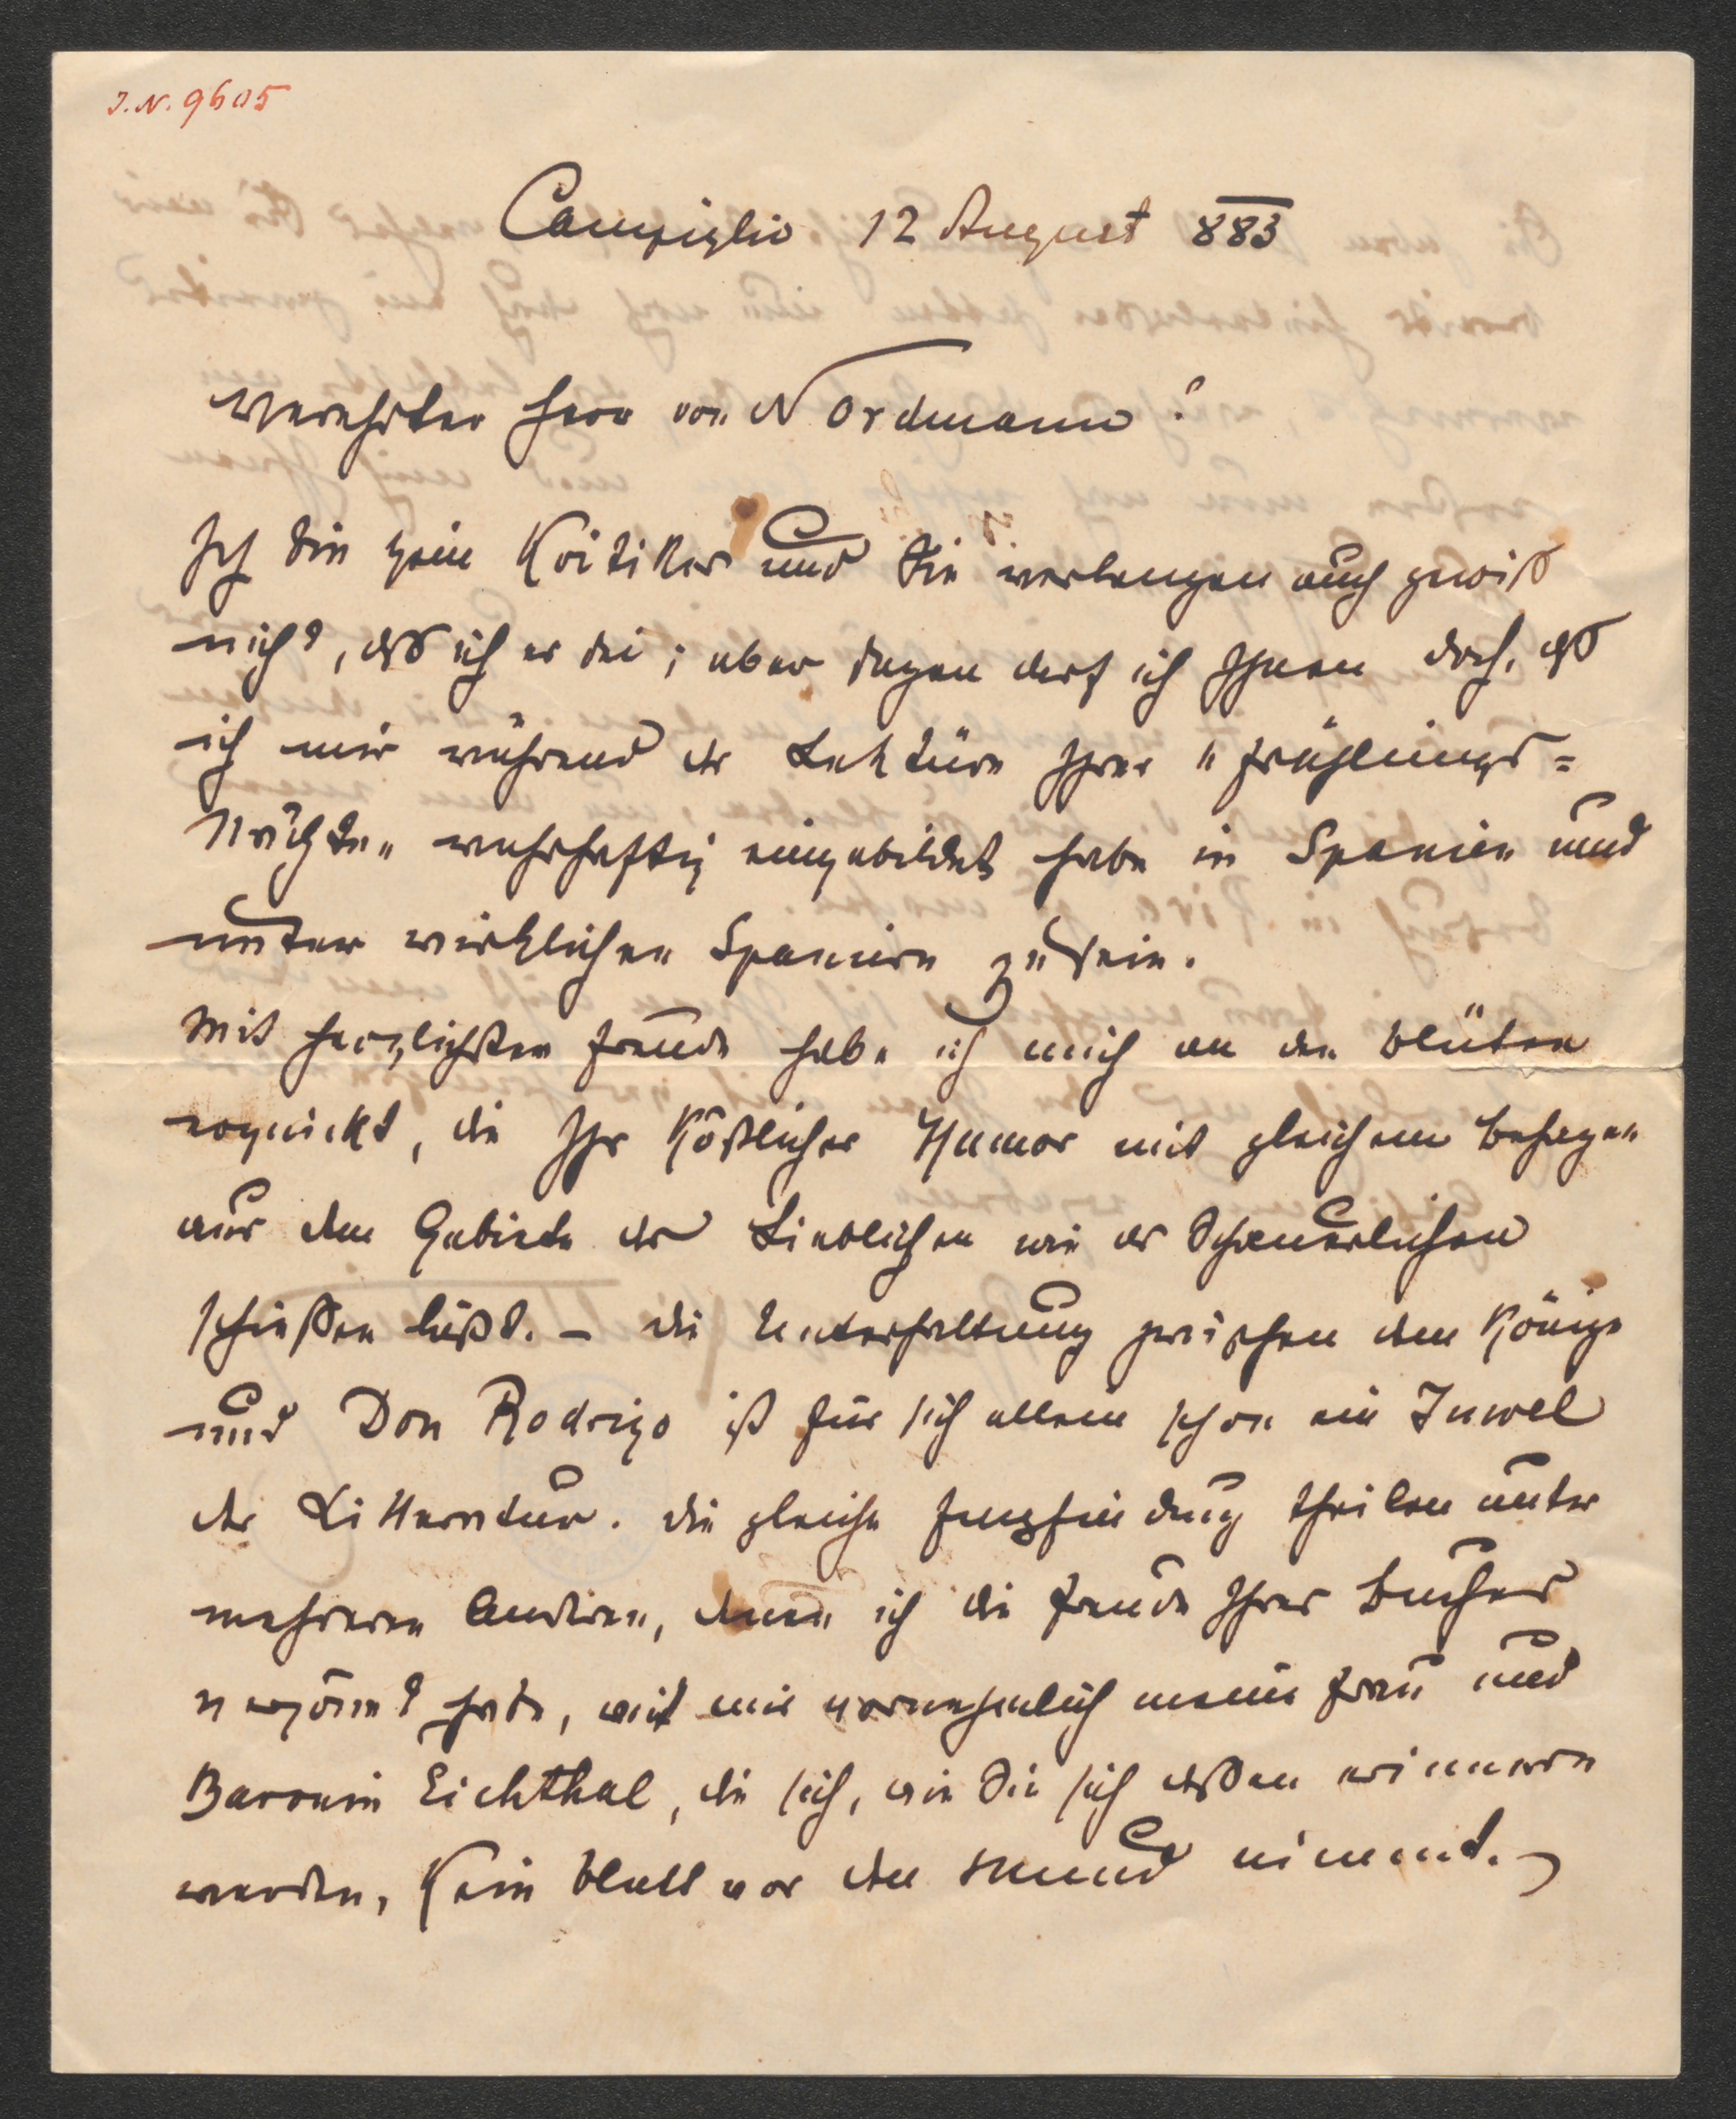 J. N. 9605
Campiglio 12 August 883
Verehrter Herr von Nordmann!
Ich bin kein Kritiker und Sie verlangen auch gewiß
nicht, daß ich es sei; aber sagen darf ich Ihnen doch, daß
ich mir während der Lektüre Ihrer "Frühlings=
Nächte" wahrhaftig eingebildet habe in Spanien und
unter wirklichen Spaniern zu sein.
Mit herzlichster Freude habe ich mich an den Blüten
erquickt, die Ihr köstlicher Humor mit gleichem Behagen
aus dem Gebiete des Lieblichen wie des Schauerlichen
schießen läßt. – Die Unterhaltung zwischen dem Könige
und Don Rodrigo ist für sich allein schon ein Juwel
der Litteratur. Die gleiche Empfindung theilen unter
mehreren Anderen, denen ich die Freude Ihres Buches
vergönnt habe, mit mir vornehmlich meine Frau und
Baronin Eichthal, die sich, wie Sie sich dessen erinnern
werden, kein Blatt vor den Mund nimmt. –